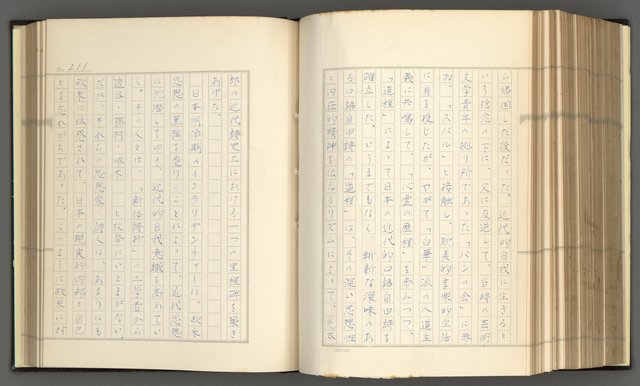 ら帰国した後だった。近代的自我に生きると
いう信念の下に、父に反逆して、当時の芸術
文学青年の拠り所であった「パンの会」に参
加、「スバル」と接触し、耽美的享楽的生活
に身を投じたが、やがて「白華」派の人道主
義に共鳴して、「心霊の歴程」を歩みつつ、
「道程」によって日本の近代的口語自由詩を
確立した。いうまでもなく、斬新な深味のあ
る口語自由詩の「道程」は、その深い思想性
と内在的精神を伝えるリズムによって、光太
No. 211
郎の近代詩史上における一つの里程碑を築き
あげた。
日本明治期のインテリゲンチャは、欧米
思想の薫陶を受けることによって、近代思想
に沈潜してゆき、近代的自我意識を高めてい
く。その人々は、「新体詩抄」の三学者から
透谷・藤村・啄木……と枚挙にいとまがない。
だが、それらの思想家・詩人は、あまりにも
欧米に眩惑されて、日本の現実的内部と自己
とを忘れがちであった。このように欧米に対